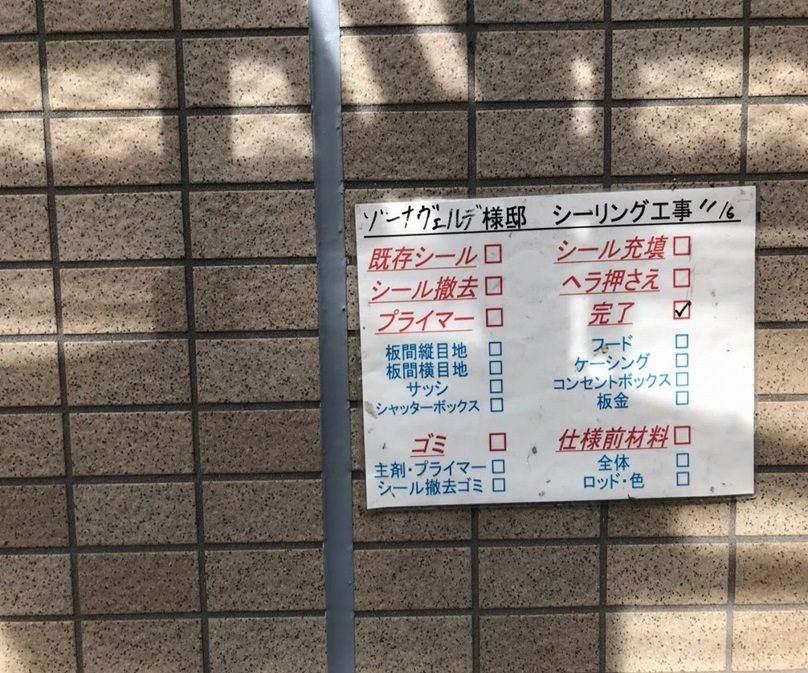 ゾーナヴェルデ様邸 シーリング工事 11/6
既存シール□ シール充填□
シール撤去□ ヘラ押さえ□
プライマー□ 完了☑
板間縦目地□ フード□
板間横目地□ ケーシング□
サッシ□ コンセントボックス□
シャッターボックス□ 板金□
ゴミ□ 仕様前材料□
主剤・プライマー□ 全体□
シール撤去ゴミ□ ロッド・色□